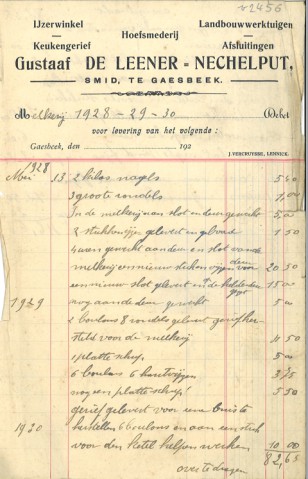 v2456
IJzerwinkel Landbouwwerktuigen
Hoefsmederij
Keukengerief Afsluitingen
Gustaaf DE LEENER = NECHELPUT,
SMID, TE GAESBEEK.
Melkerij 1928 - 29 - 30 Debet
voor levering van het volgende :
Gaesbeek, den 192
J. VERCRUYSSE, LENNICK.
1928
Mei 13 2 kilos nagels 5,40
3 groote rondels 1,00
In de melkerij aan slot en deur gewerkt 5,00
2 stuks gelevert en 1,50
4 uren gewerkt aan dem en slot van de
melkerij en nieuw voor 20,50
een nieuw slot gelevert 15,00
1929 nog aan de deur gewerkt 5,00
2 boulons 8 rondels gelevert
steld voor de melkerij 4,50
1 platte schup 5,00
6 boulons 6 3,75
nog een platte schup 5,50
gerief gelevert voor een buis te
1930 herstellen 6 boulons en aan een stuk
voor den ketel helpen werken 10,00
82,65
over te dragen